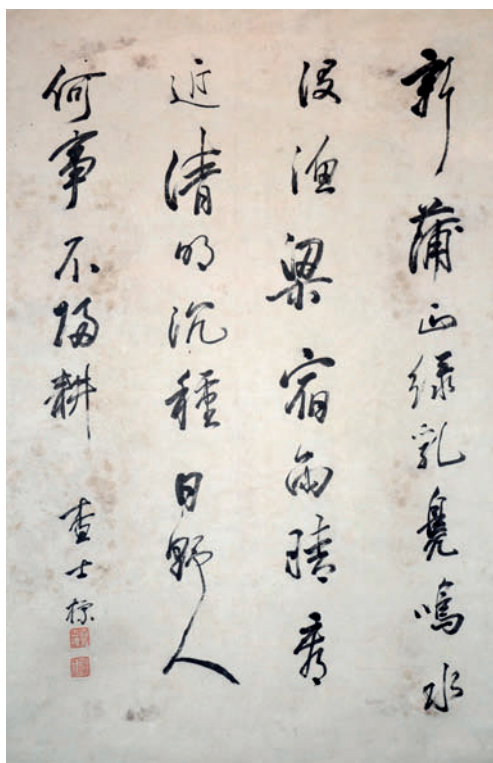 新蒲正綠乳鳧鳴水
没漁梁宿雨晴看
近清明沉種日野人
何事不歸耕
查士標